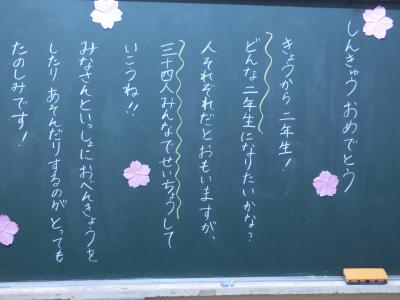 しんきゅう おめでとう
きょうから 二年生!
どんな 二年生になりたいかな?
人それぞれだとおもいますが、
三十四人みんなでせいちょうして
いこうね!!
みなさんといっしょにおべんきょうを
したり あそんだりするのが とっても
たのしみです!